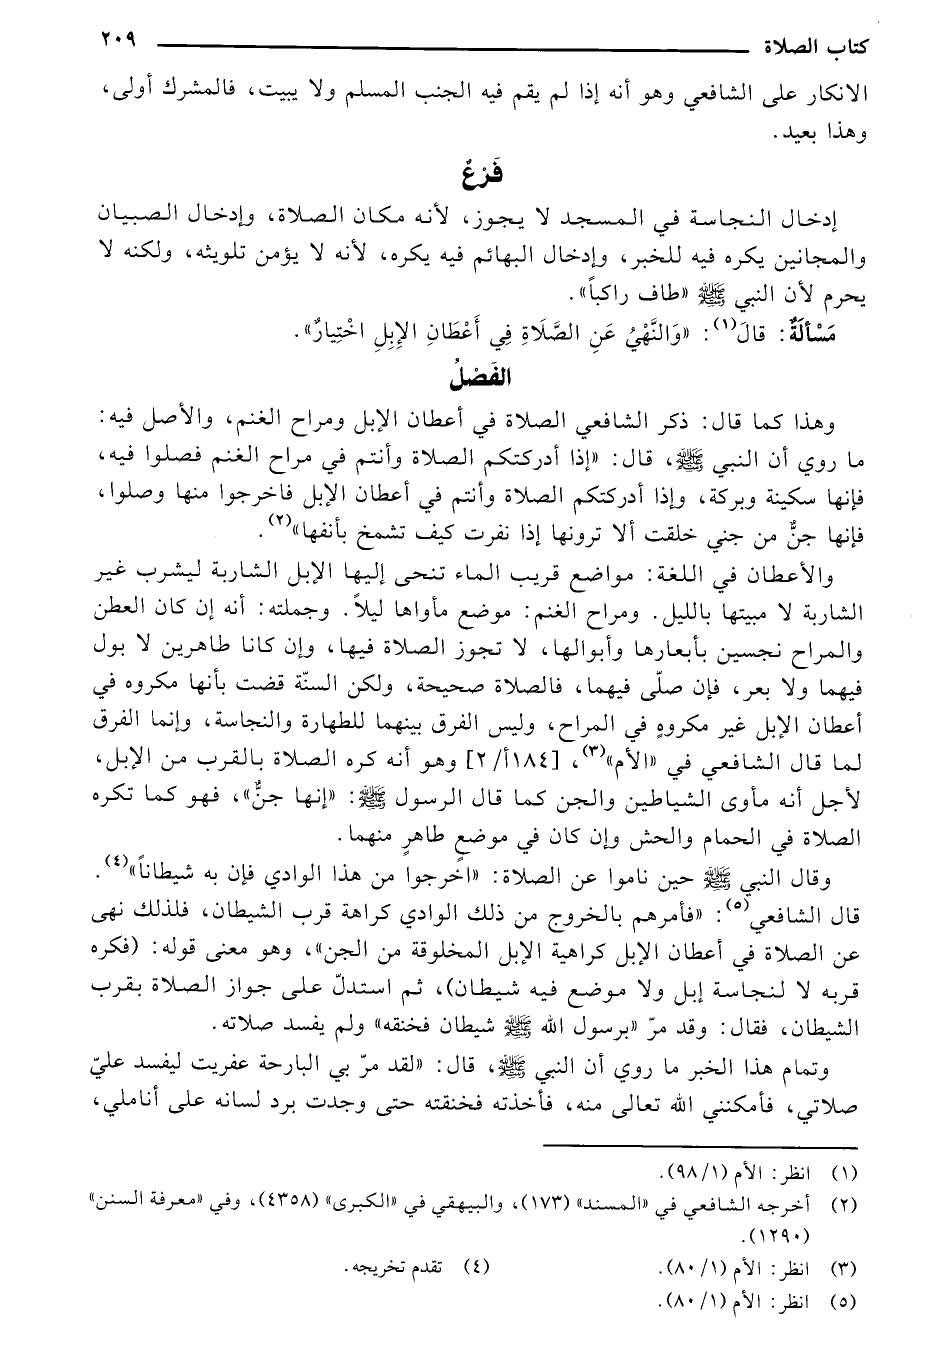 كتاب الصلاة ٢٠٩
الانكار على الشافعي وهو أنه إذا لم يقم فيه الجنب المسلم ولا يبيت، فالمشرك أولى،
وهذا بعيد.
فَرْعٌ
إدخال النجاسة في المسجد لا يجوز، لأنه مكان الصلاة، وإدخال الصبيان
والمجانين يكره فيه للخبر، وإدخال البهائم فيه يكره، لأنه لا يؤمن تلويثه، ولكنه لا
يحرم لأن النبي ﷺ «طاف راكباً».
مَسْألَةٌ: قالَ(١): «وَالنَّهْيُ عَنِ الصَّلَاةِ فِي أَعْطَانِ الإِبِلِ اخْتِيَارٌ».
الفَصْلُ
وهذا كما قال: ذكر الشافعي الصلاة في أعطان الإبل ومراح الغنم، والأصل فيه:
ما روي أن النبي ﷺ، قال: «إذا أدركتكم الصلاة وأنتم في مراح الغنم فصلوا فيه،
فإنها سكينة وبركة، وإذا أدركتكم الصلاة وأنتم في أعطان الإبل فاخرجوا منها وصلوا،
فإنها جنٌّ من جني خلقت ألا ترونها إذا نفرت كيف تشمخ بأنفها»(٢).
والأعطان في اللغة: مواضع قريب الماء تنحى إليها الإبل الشاربة ليشرب غير
الشاربة لا مبيتها بالليل. ومراح الغنم: موضع مأواها ليلاً. وجملته: أنه إن كان العطن
والمراح نجسين بأبعارها وأبوالها، لا تجوز الصلاة فيها، وإن كانا طاهرين لا بول
فيهما ولا بعر، فإن صلّى فيهما، فالصلاة صحيحة، ولكن السنّة قضت بأنها مكروه في
أعطان الإبل غير مكروهٍ في المراح، وليس الفرق بينهما للطهارة والنجاسة، وإنما الفرق
لما قال الشافعي في «الأم»(٣)، [١٨٤أ/ ٢] وهو أنه كره الصلاة بالقرب من الإبل،
لأجل أنه مأوى الشياطين والجن كما قال الرسول ﷺ: «إنها جنٌّ»، فهو كما تكره
الصلاة في الحمام والحش وإن كان في موضعٍ طاهرٍ منهما.
وقال النبي ﷺ حين ناموا عن الصلاة: «اخرجوا من هذا الوادي فإن به شيطاناً»(٤).
قال الشافعي(٥): «فأمرهم بالخروج من ذلك الوادي كراهة قرب الشيطان، فلذلك نهى
عن الصلاة في أعطان الإبل كراهية الإبل المخلوقة من الجن»، وهو معنى قوله: (فكره
قربه لا لنجاسة إبل ولا موضع فيه شيطان)، ثم استدلّ على جواز الصلاة بقرب
الشيطان، فقال: وقد مرّ «برسول الله ﷺ شيطان فخنقه» ولم يفسد صلاته.
وتمام هذا الخبر ما روي أن النبي ﷺ، قال: «لقد مرّ بي البارحة عفريت ليفسد عليّ
صلاتي، فأمكنني الله تعالى منه، فأخذته فخنقته حتى وجدت برد لسانه على أناملي،
(١) انظر: الأم (١/ ٩٨).
(٢) أخرجه الشافعي في «المسند» (١٧٣)، والبيهقي في «الكبرى» (٤٣٥٨)، وفي «معرفة السنن»
(١٢٩٠).
(٣) انظر: الأم (١/ ٨٠). (٤) تقدم تخريجه.
(٥) انظر: الأم (١/ ٨٠).